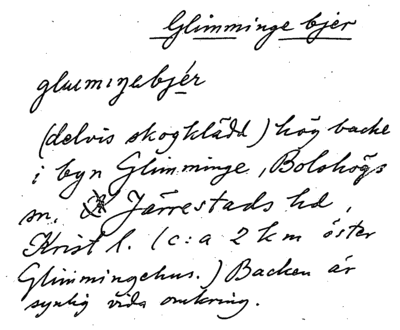 Glimminge bjer
glɩmɩŋabjér
(delvis skogklädd) hög backe
i byn Glimminge, Bolshögs
sn. Järrestads hd,
Krist l. (c:a 2 km öster
Glimmingehus.) Backen är
synlig vida omkring.